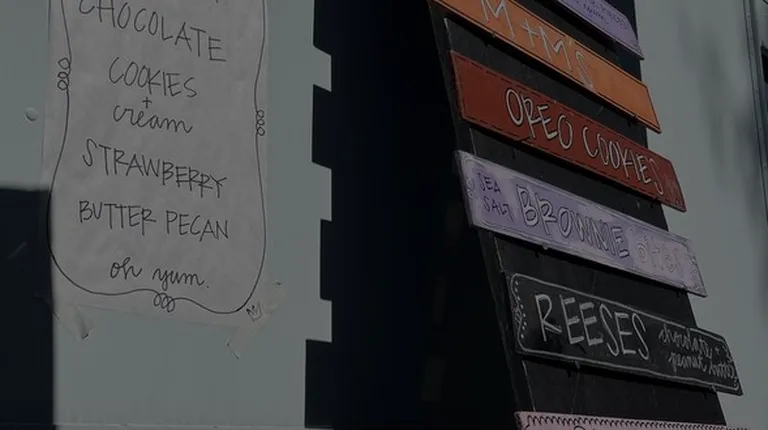 CHOCOLATE
COOKIES
+
cream
STRAWBERRY
BUTTER PECAN
oh yum.
M+M's
OREO COOKIES
SEA
SALT
BROWNIE
REESES
chocolate +
peanut butter